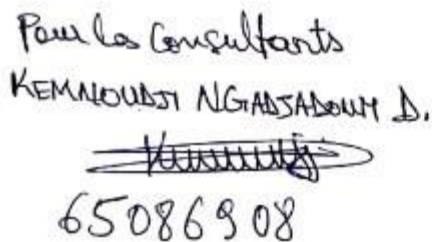 Pour les Consultants
KEMNOUDJI NGADJADOUM D.
65086908